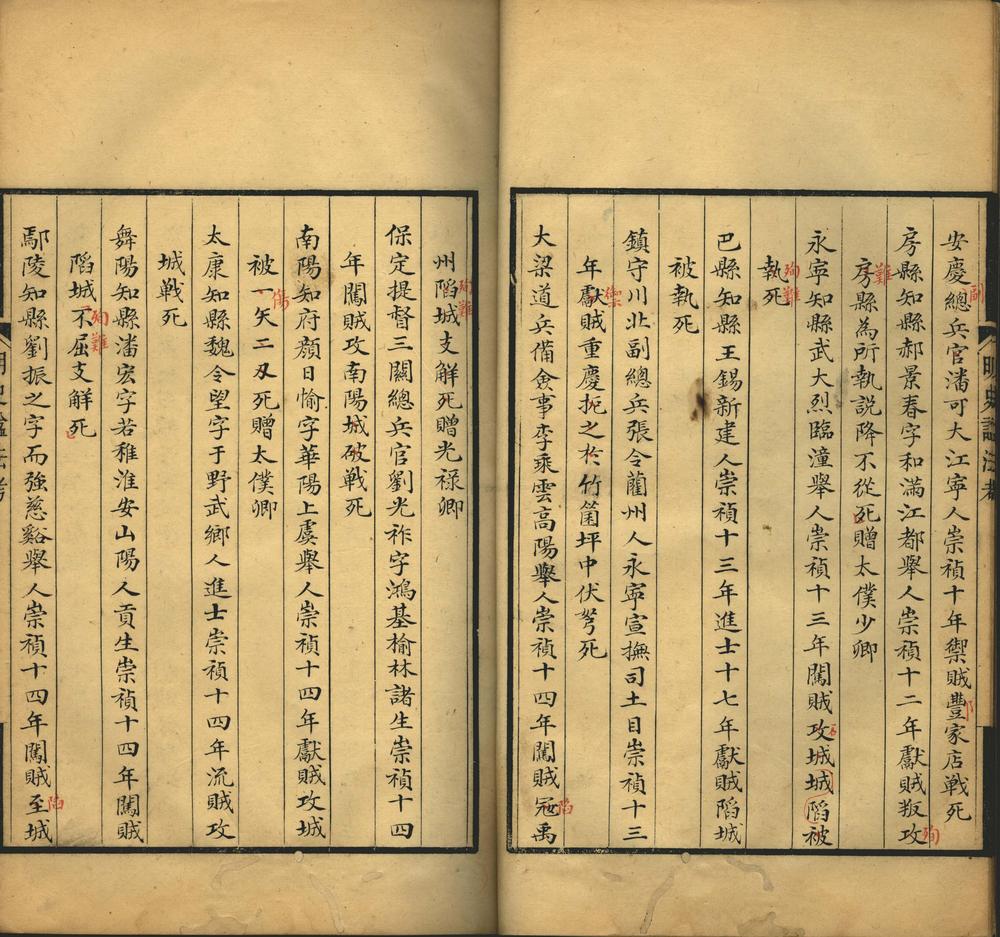 安慶總兵官潘可大江寧人崇禎十年禦賊豐家店戰死
副
房縣知縣郝景春字和滿江都舉人崇禎十二年獻賊叛攻
殉
難
房縣為所執說降不從死贈太僕少卿
永寧知縣武大烈臨潼舉人崇禎十三年闖賊攻城城陷被
殉難
執死
巴縣知縣王錫新建人崇禎十三年進士十七年獻賊陷城
被執死
鎮守川北副總兵張令藺州人永寧宣撫司土目崇禎十三
禦
年獻賊重慶扼之於竹箘坪中伏弩死
大梁道兵備僉事李乘雲高陽舉人崇禎十四年闖賊冦禹
陷
明史諡法考
州陷城支解死贈光祿卿
殉難
保定提督三關總兵官劉光祚字鴻基榆林諸生崇禎十四
年闖賊攻南陽城破戰死
南陽知府顏日愉字華陽上虞舉人崇禎十四年獻賊攻城
被一矢二刄死贈太僕卿
傷
太康知縣魏令望字于野武鄉人進士崇禎十四年流賊攻
城戰死
舞陽知縣潘宏字若稚淮安山陽人貢生崇禎十四年闖賊
陷城不屈支解死
殉難
鄢陵知縣劉振之字而強慈谿舉人崇禎十四年闖賊至城
陷